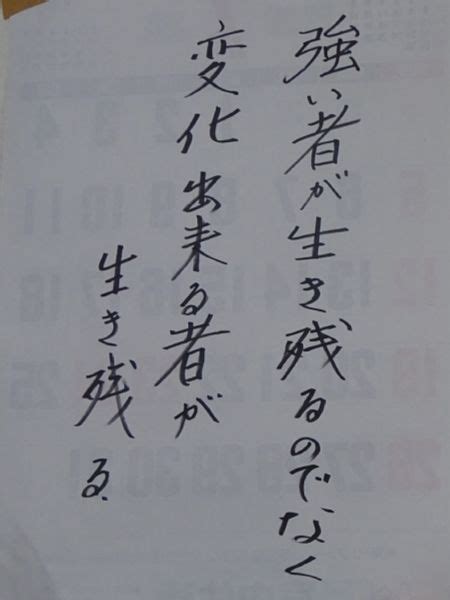 強い者が生き残るのでなく
変化出来る者が
生き残る